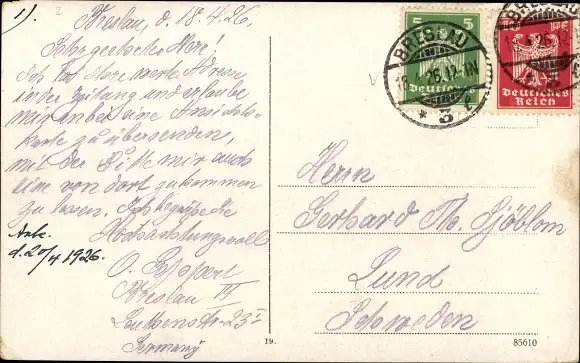 1).
Breslau, d. 18.4.26.
Sehr geehrter Herr.
Ich las Ihre werte Adresse
in der Zeitung und erlaube
mir anbei eine Ansichts-
karte zu übersenden,
mit der Bitte mir auch
eine von dort zukommen
zu lassen. Ich begrüße Sie
Hochachtungsvoll
O.
Breslau VI
Leuthenstr. 23 I
Germany
d. 20/4 1926.
5
BRESLAU
Deutsches
Reich
* 3
Herrn
Gerhard Th. Sjöblom
Lund
Schweden
19.
85610